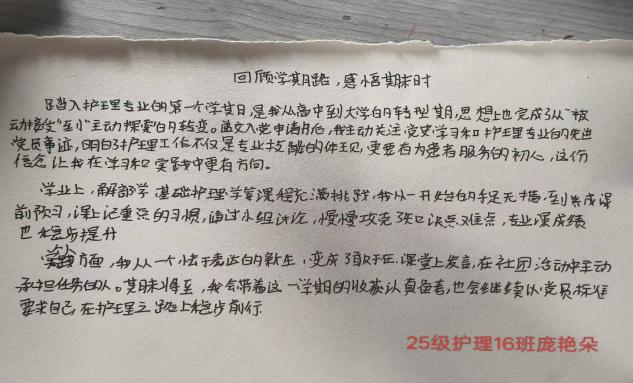 回顾学期路，感悟期末时
踏入护理专业的第一个学期，是我从高中到大学的转型期，思想上也完成了从“被
动接受”到“主动探索”的转变。递交入党申请书后，我主动关注党史学习和护理专业的先进
党员事迹，明白了护理工作不仅是专业技能的体现，更要有为患者服务的初心，这份
信念让我在学习和实践中更有方向。
学业上，解剖学 基础护理学等课程充满挑战，我从一开始的手足无措，到养成课
前预习，课上记重点的习惯，通过小组讨论，慢慢攻克知识点难点，专业课成绩
也稳步提升
方面，我从一个怯于表达的新生，变成了敢于在课堂上发言，在社团活动中主动
承担任务的人。期末将至，我会带着这一学期的收获认真备考，也会继续以党员标准
要求自己，在护理之路上稳步前行
25级护理16班庞艳朵